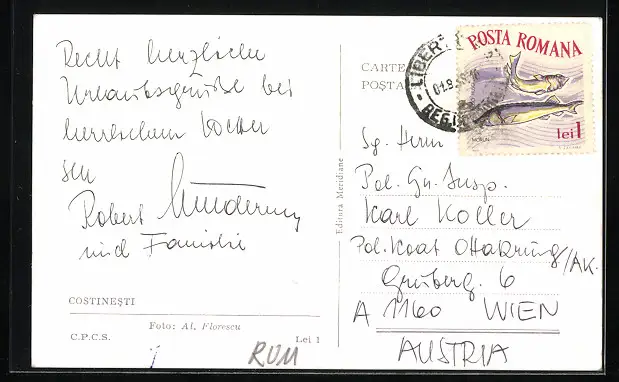 Recht herzliche
Urlaubsgrüße bei
herrlichem Wetter
Robert
und Familie
COSTINEȘTI
Foto: Al. Florescu
C.P.C.S.
Lei 1
RUM
Editura Meridiane
CARTE
POȘTA
POSTA ROMANA
lei 1
Sg. Herrn
Pol. Gr. Insp.
Karl Koller
Pol. Koat Ottakring/AK.
Gruberg. 6
A 1160 WIEN
AUSTRIA